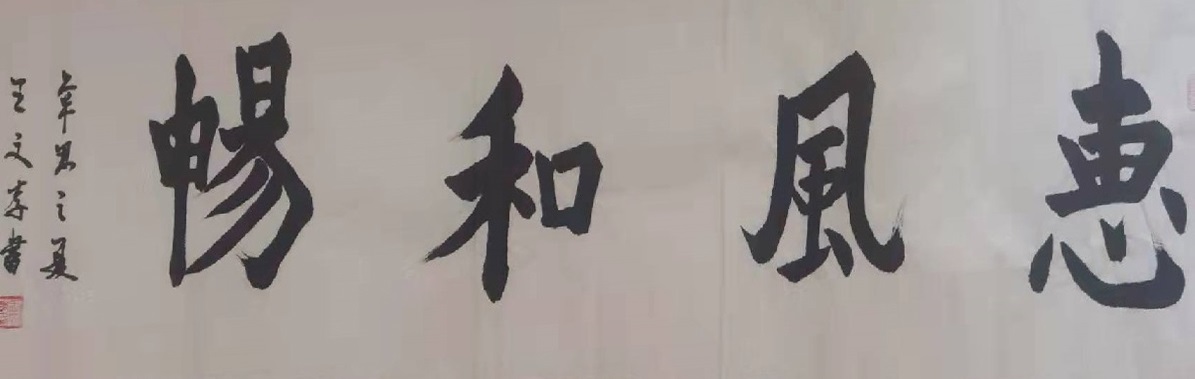 惠風和暢
辛丑之夏
王文書